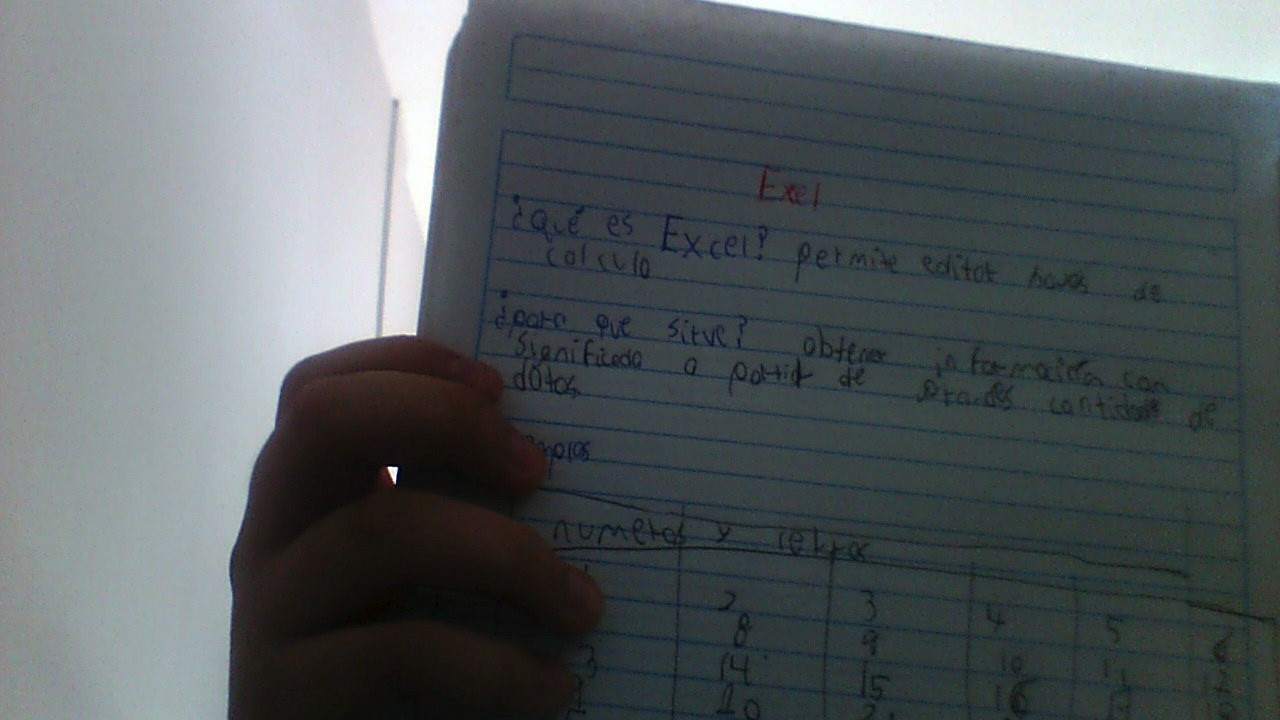 Exel
¿qué es Excel? permite editar hojas de
calculo
¿para que sirve? obtener información con
significado a partir de grandes cantidade de
datos
numeros y letras
2 3 4 5 6
8 9 10 11 12
14 15 16
20